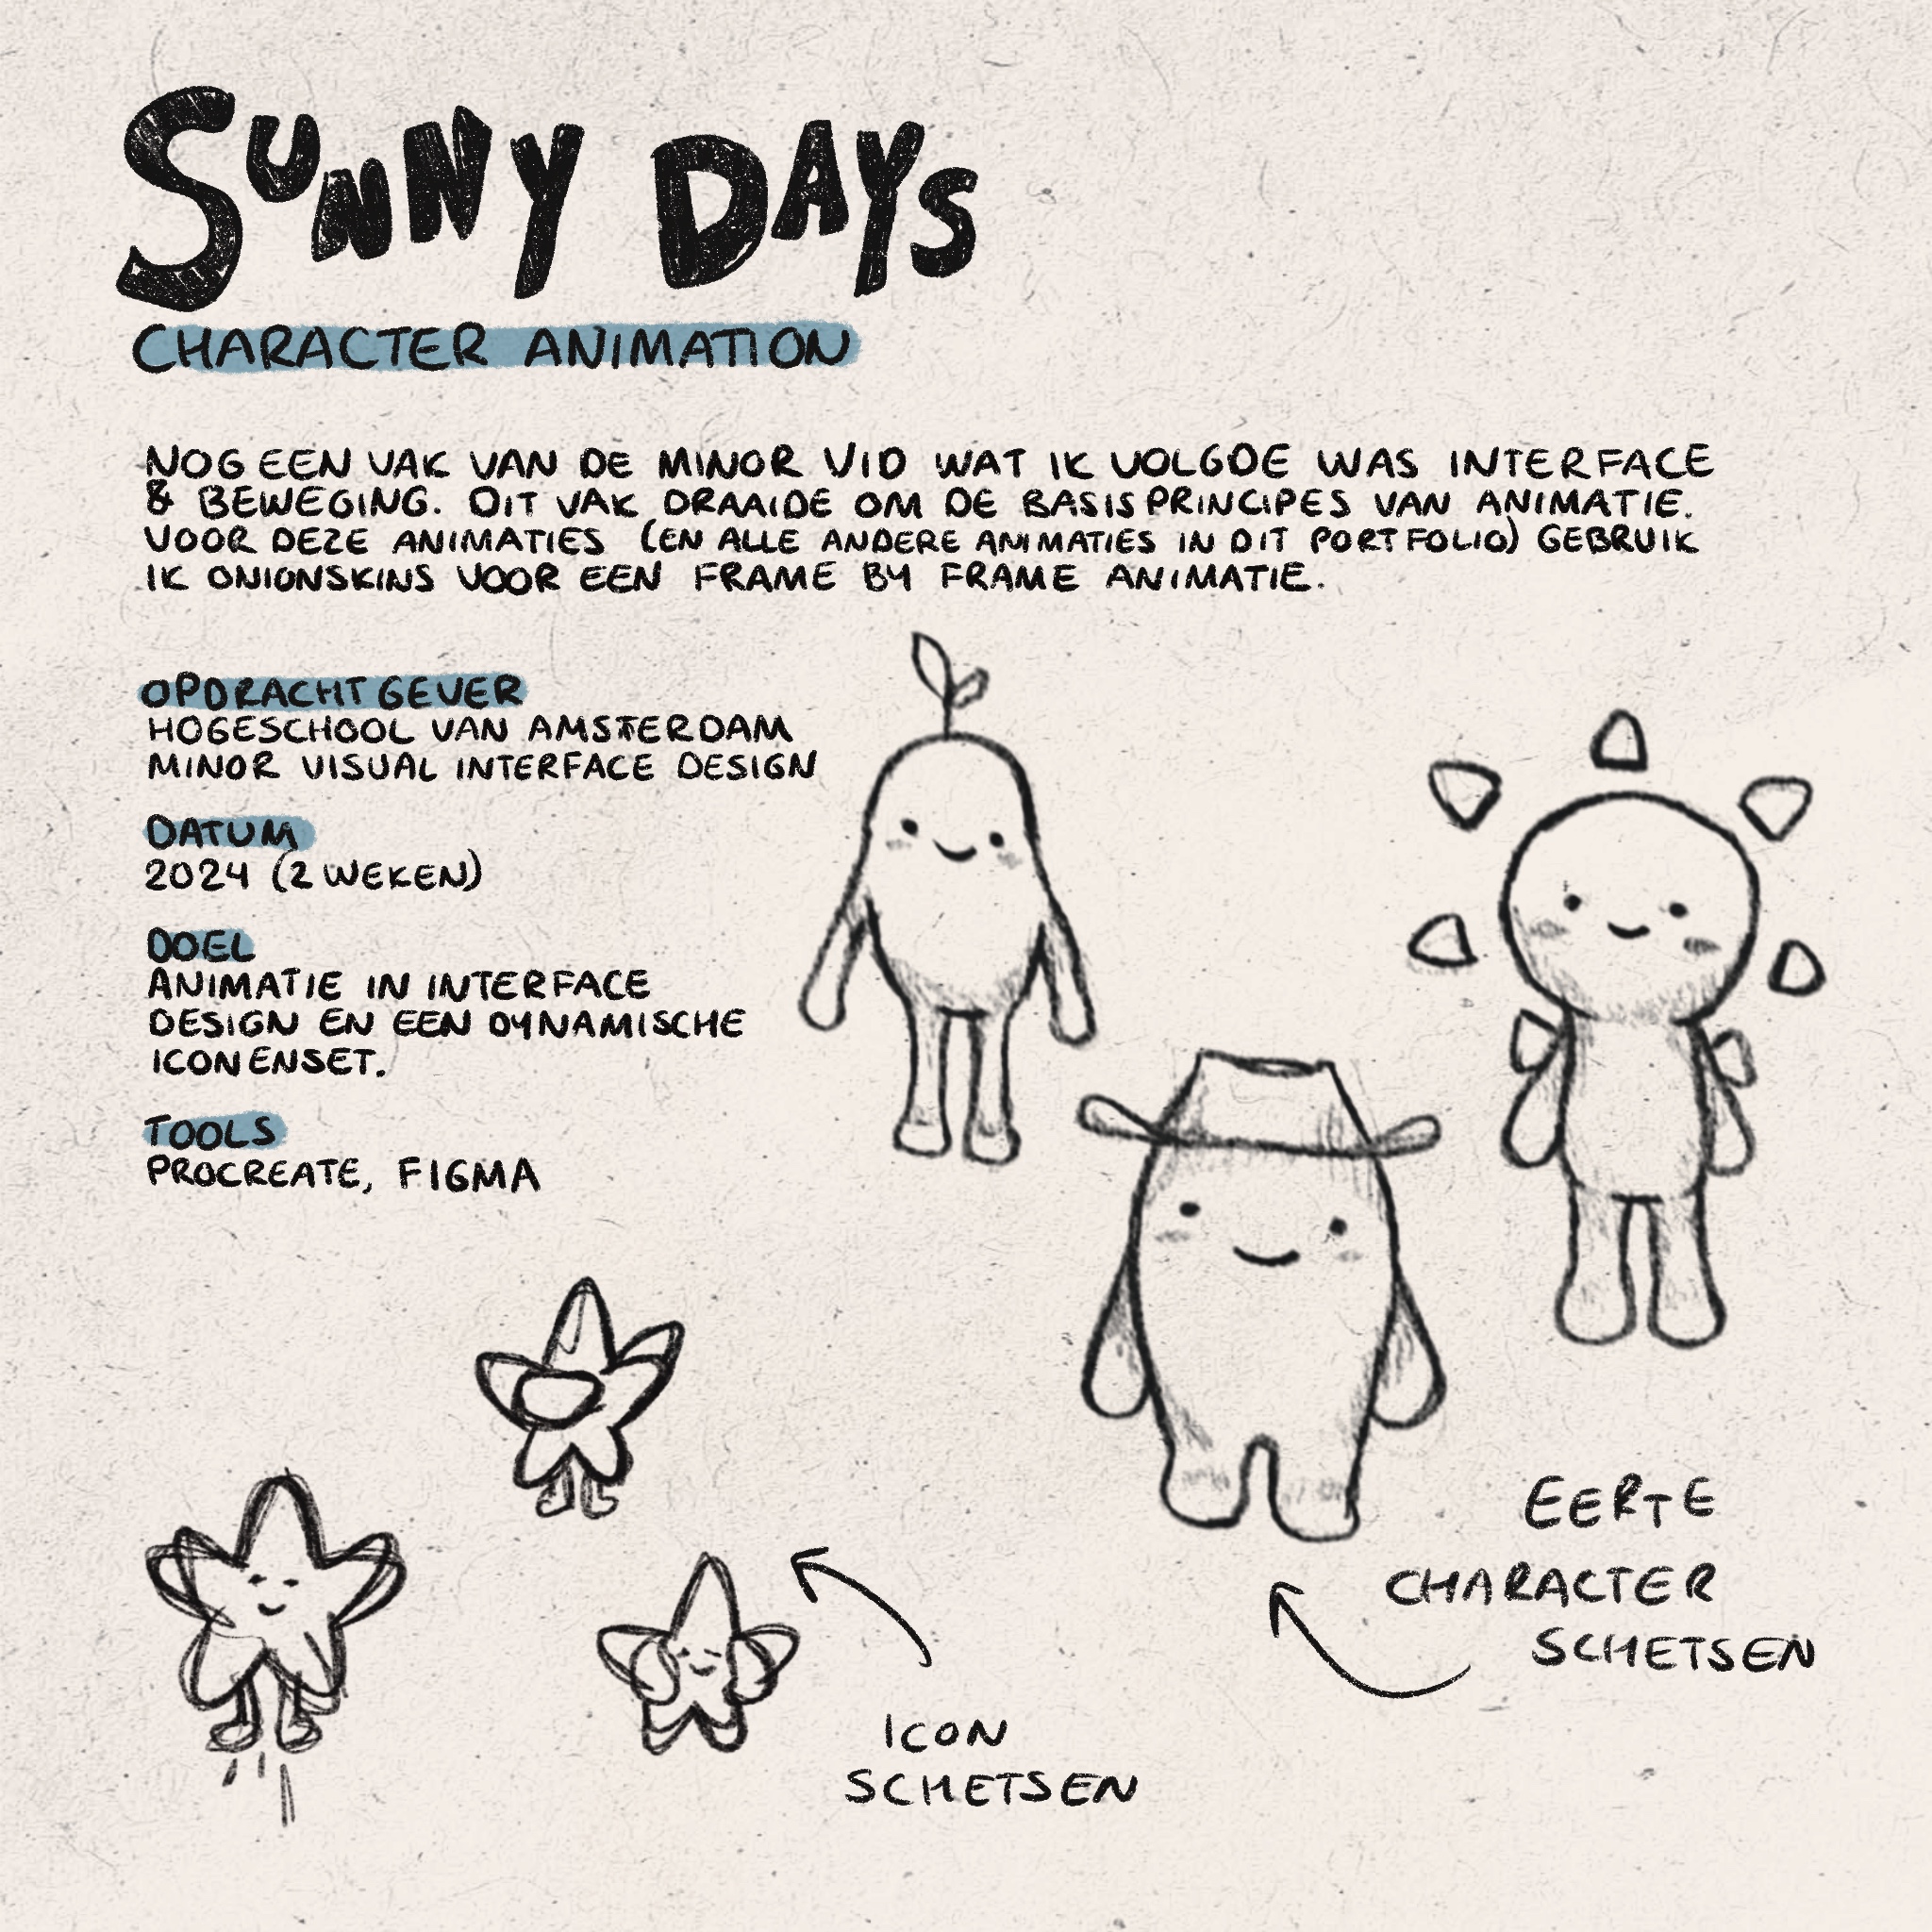 SUNNY DAYS
CHARACTER ANIMATION
NOG EEN VAK VAN DE MINOR VID WAT IK VOLGDE WAS INTERFACE
& BEWEGING. DIT VAK DRAAIDE OM DE BASISPRINCIPES VAN ANIMATIE.
VOOR DEZE ANIMATIES (EN ALLE ANDERE ANIMATIES IN DIT PORTFOLIO) GEBRUIK
IK ONIONSKINS VOOR EEN FRAME BY FRAME ANIMATIE.
OPDRACHTGEVER
HOGESCHOOL VAN AMSTERDAM
MINOR VISUAL INTERFACE DESIGN
DATUM
2024 (2 WEKEN)
DOEL
ANIMATIE IN INTERFACE
DESIGN EN EEN DYNAMISCHE
ICONENSET.
TOOLS
PROCREATE, FIGMA
EERTE
CHARACTER
SCHETSEN
ICON
SCHETSEN